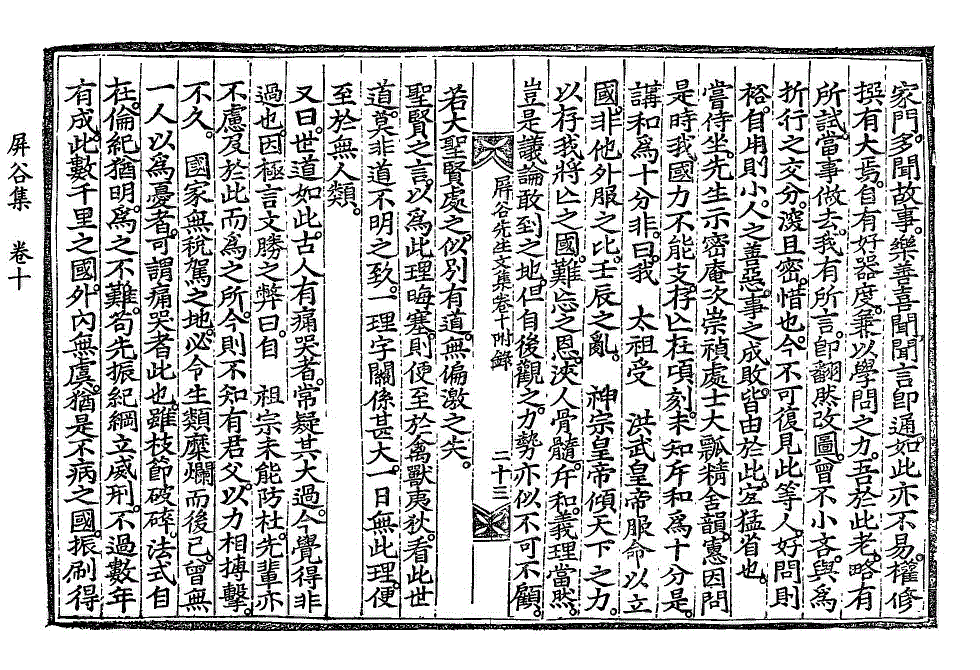 家門。多聞故事。樂善喜聞。聞言卽通。如此亦不易。權修
撰有大焉。自有好器度。兼以學問之力。吾於此老。略有
所試。當事做去。我有所言。卽翻然改圖。曾不小吝。與爲
折行之交分。深且密。惜也。今不可復見此等人。好問則
裕。自用則小。人之善惡。事之成敗。皆由於此。宜猛省也。
嘗侍坐。先生示密庵次崇禎處士大瓢精舍韻。憲因問
是時我國力不能支。存亡在頃刻。未知斥和爲十分是。
講和爲十分非。曰。我 太祖受 洪武皇帝服命以立
國。非他外服之比。壬辰之亂。 神宗皇帝傾天下之力。
以存我將亡之國。難忘之恩。浹人骨髓。斥和。義理當然。
豈是議論敢到之地。但自後觀之。力勢亦似不可不顧。
屛谷先生文集卷十附錄 二十三
若大聖賢處之。似別有道。無偏激之失。
聖賢之言。以爲此理晦塞。則便至於禽獸夷狄。看此世
道。莫非道不明之致。一理字關係甚大。一日無此理。便
至於無人類。
又曰。世道如此。古人有痛哭者。常疑其大過。今覺得非
過也。因極言文勝之弊曰。自 祖宗未能防杜。先輩亦
不慮及於此而爲之所。今則不知有君父。以力相搏擊。
不久。 國家無稅駕之地。必令生類糜爛而後已。曾無
一人以爲憂者。可謂痛哭者此也。雖枝節破碎。法式自
在。倫紀猶明。爲之不難。苟先振紀綱立威刑。不過數年
有成。此數千里之國。外內無虞。猶是不病之國。振刷得
屛谷集 卷十